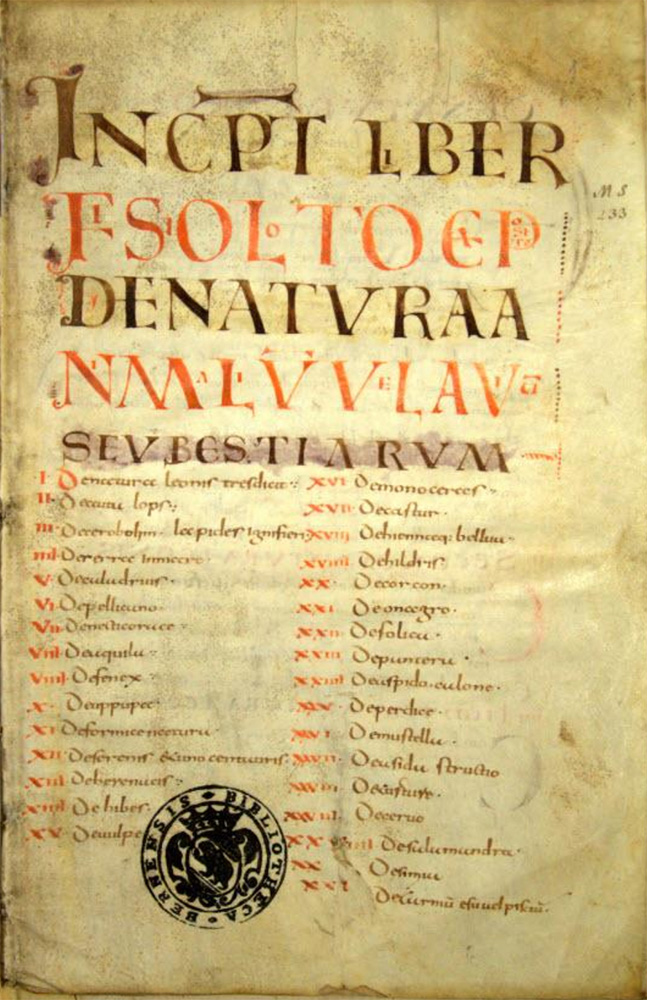 INCP̅T LIBER
FISIOLOTO EP
DENATVRAA
NIMALIV̅ VELAVIU̅
SEVBESTIARUM
I Denaturа leonis tresdicit
II Deautu lops
III Decerobolim lapides ignifieri
IIII Deserra inmare
V Deculudrius
VI Depellicano
VII Denicticorace
VIII Deaquila
VIIII Defenex
X Deuppupa
XI Deformice natura
XII Deserenis et unocentauris
XIII Deherenacis
XIIII Dehibes
XV Deuulpe
XVI Demonoceres
XVII Decastur
XVIII Dehiennaq: bellua
XVIIII Dehildris
XX Decorcon
XXI Deonagro
XXII Defolica
XXIII Depantera
XXIIII Deaspidocalone
XXV Deperdice
XXVI Demustella
XXVII Deasida structio
XXVIII Decasture
Deceruo
Desalamandra
Desimia
M S
233
BIBLIOTHECA BERNENSIS